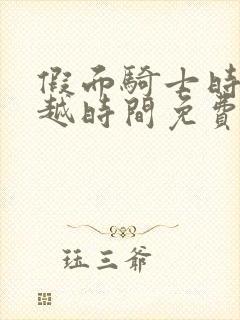 假面騎士時
越時間免費
珏三爺